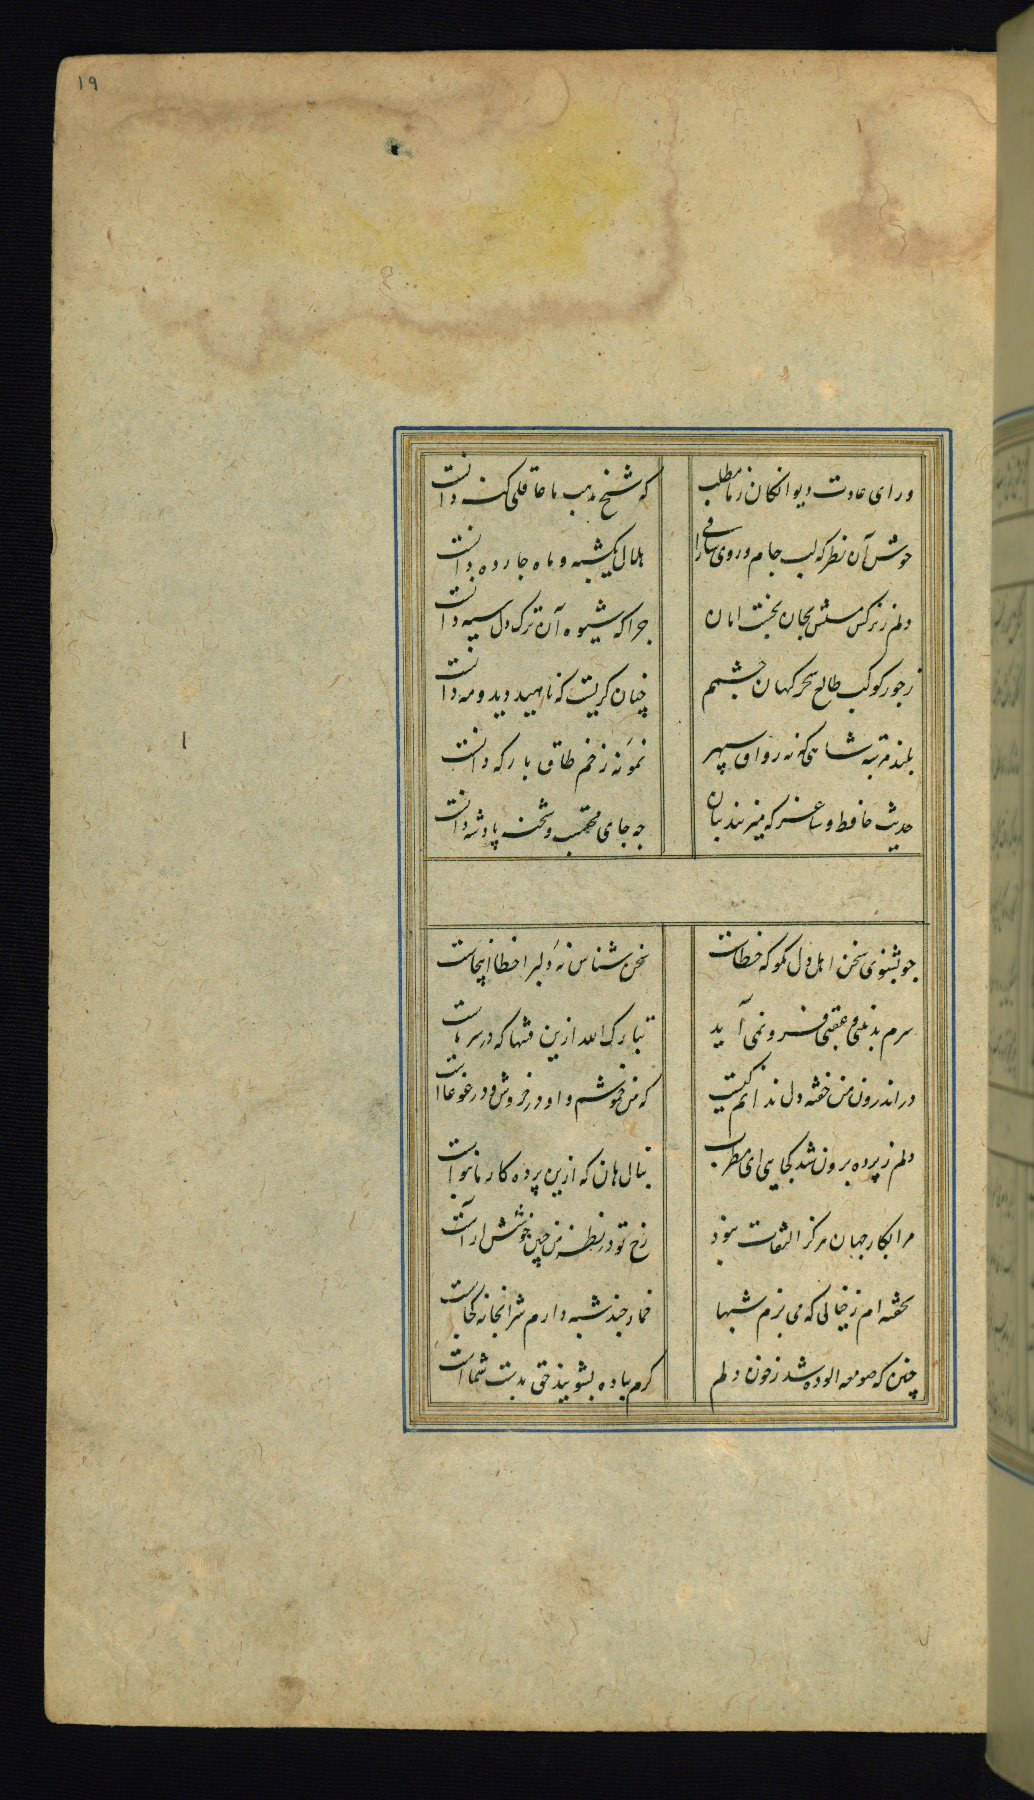 ۱۹
ورای عادت دیوانکان ز ما مطلب که شیخ مذهب ما عاقلی کنه دانست
خوش آن نظر که لب جام و روی ساقی را هلال یکشبه و ماه چارده دانست
دلم ز نرکس مستش بجان نخست امان چرا که شیوه آن ترک دل سیه دانست
ز جور کوکب طالع سحرکهان چشمم چنان کریست که ناهید دید و مه دانست
بلند مرتبه شاهی که نه رواق سپهر نمونه ز خم طاق بارکه دانست
حدیث حافظ و ساغر که میزند پنهان چه جای محتسب و شحنه پادشه دانست
چو بشنوی سخن اهل دل مکو که خطاست سخن شناس نه دلبرا خطا اینجاست
سرم بدنیی و عقبی فرو نمی آید تبارک الله ازین فتنها که در سر ماست
در اندرون من خسته دل ندانم کیست که من خموشم و او در خروش و در غوغاست
دلم ز پرده برون شد کجایی ای مطرب بنال هان که ازین پرده کار ما بنواست
مرا بکار جهان هرکز التفات نبود رخ تو در نظر من چنین خوشش اراست
نخفته ام ز خیالی که می پزم شبها خمار چند شبه دارم شرابخانه کجاست
چنین که صومعه الوده شد ز خون دلم کرم بباده بشویید حق بدست شماست